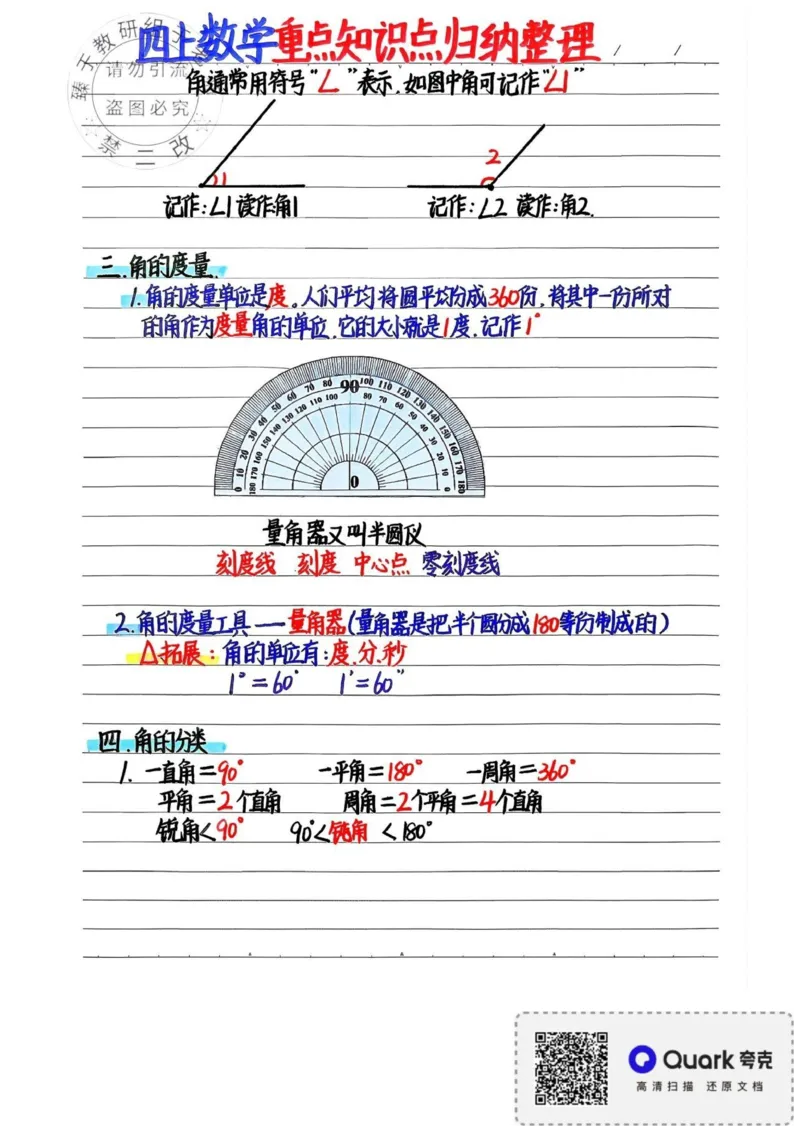 四上数学重点知识点归纳整理
臻于教研组
请勿引流
盗图必究
禁二改
角通常用符号“∠”表示,如图中角可记作“∠1”
1
2
记作:∠1 读作角1
记作:∠2 读作:角2.
三.角的度量.
1.角的度量单位是度。人们平均将圆平均分成360份,将其中一份所对
的角作为度量角的单位,它的大小就是1度.记作1°
0 10 20 30 40 50 60 70 80 90 100 110 120 130 140 150 160 170 180
180 170 160 150 140 130 120 110 100 80 70 60 50 40 30 20 10 0
0
量角器又叫半圆仪
刻度线 刻度 中心点 零刻度线
2.角的度量工具——量角器(量角器是把半个圆分成180等份制成的)
△拓展:角的单位有:度.分.秒
1°=60′ 1′=60″
四.角的分类
1. 一直角=90° 一平角=180° 一周角=360°
平角=2个直角 周角=2个平角=4个直角
锐角<90° 90°<钝角<180°
Quark夸克
高清扫描 还原文档